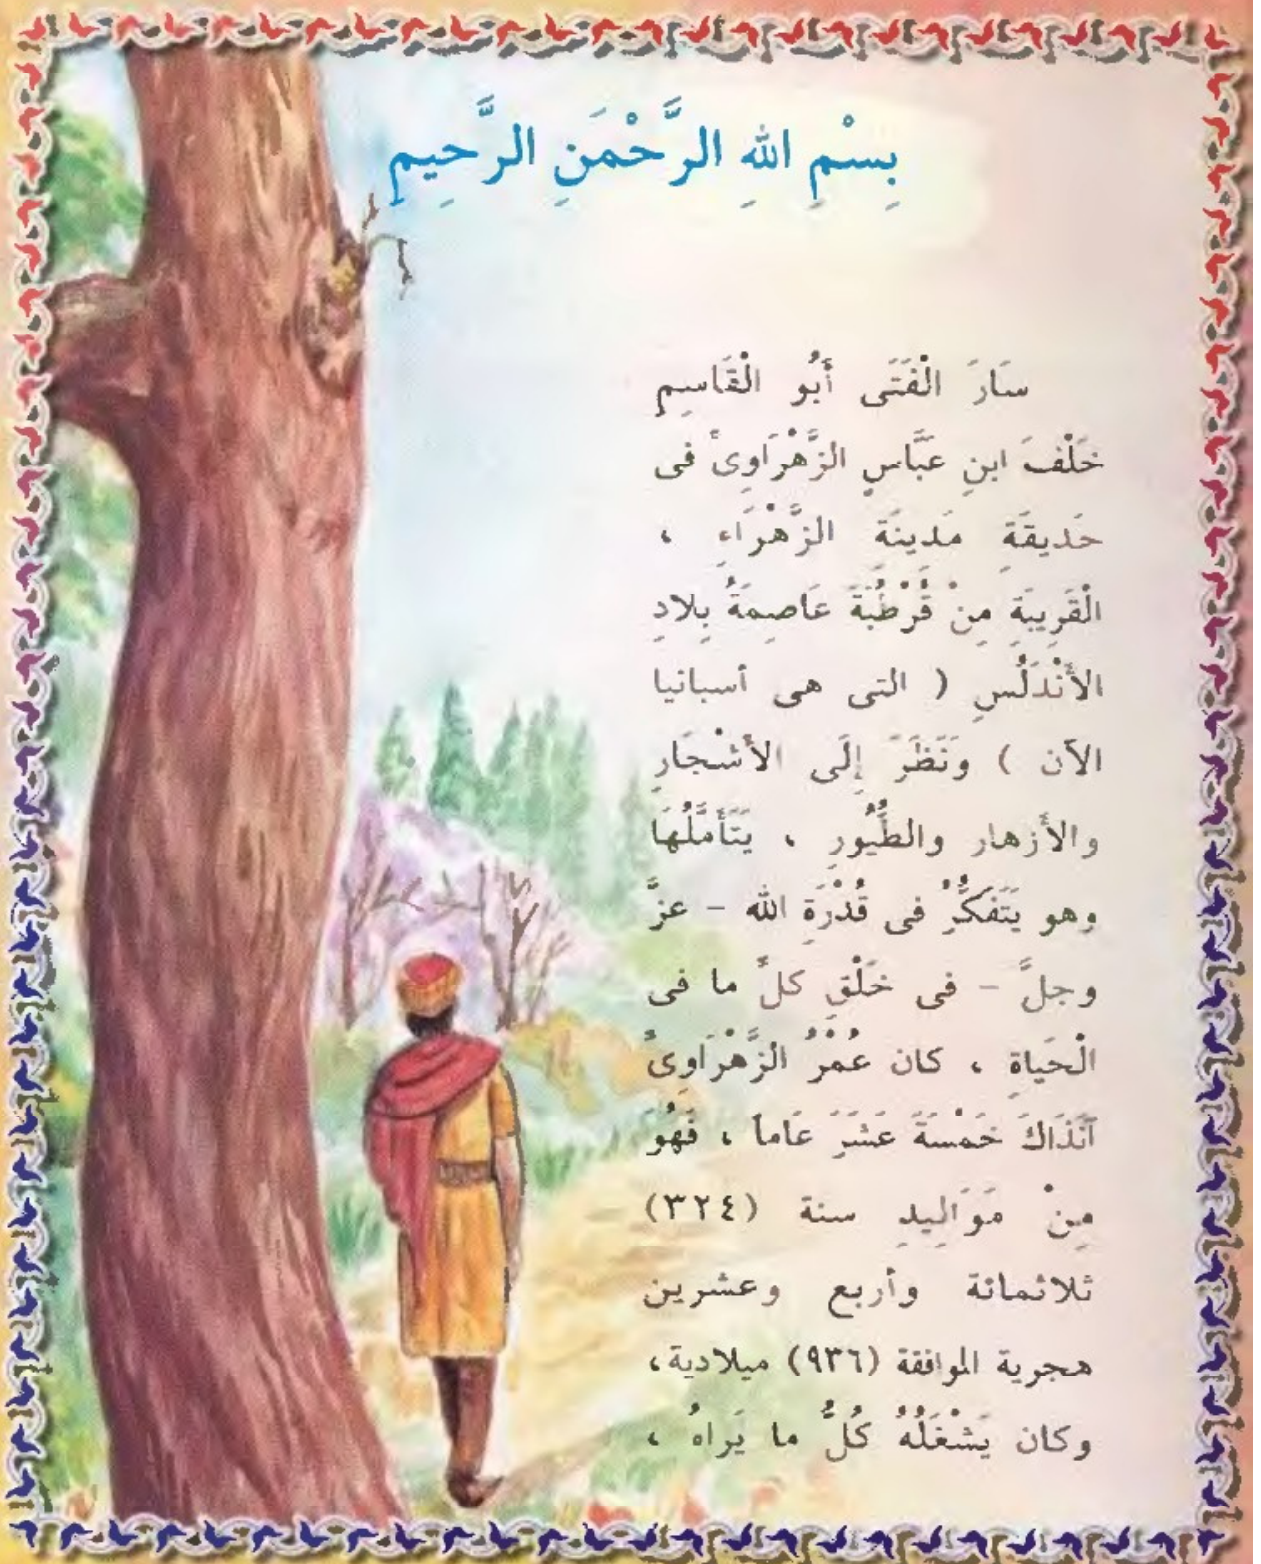 بِسْمِ اللهِ الرَّحْمَنِ الرَّحِيمِ
سَارَ الْفَتَى أَبُو الْقَاسِمِ
خَلْفَ ابنِ عَبَّاسٍ الزَّهْرَاوِىُّ فى
حَدِيقَةِ مَدِينَةِ الزَّهْرَاءِ ،
الْقَرِيبَةِ مِنْ قُرْطُبَةَ عَاصِمَةُ بِلادِ
الأَنْدَلُسِ ( التى هى أسبانيا
الآن ) وَنَظَرَ إِلَى الأَشْجَارِ
والأَزهار والطُّيُورِ ، يَتَأَمَّلُهَا
وهو يَتَفَكَّرُ فى قُدْرَةِ الله – عزَّ
وجلَّ – فى خَلْقِ كلِّ ما فى
الْحَيَاةِ ، كان عُمْرُ الزَّهْرَاوِىِّ
آنَذَاكَ خَمْسَةَ عَشَرَ عَاماً ، فَهُوَ
مِنْ مَوَالِيدِ سنة (٣٢٤)
ثلاثمائة وأربع وعشرين
هجرية الموافقة (٩٣٦) ميلادية،
وكان يَشْغَلُهُ كُلُّ ما يَراهُ ،